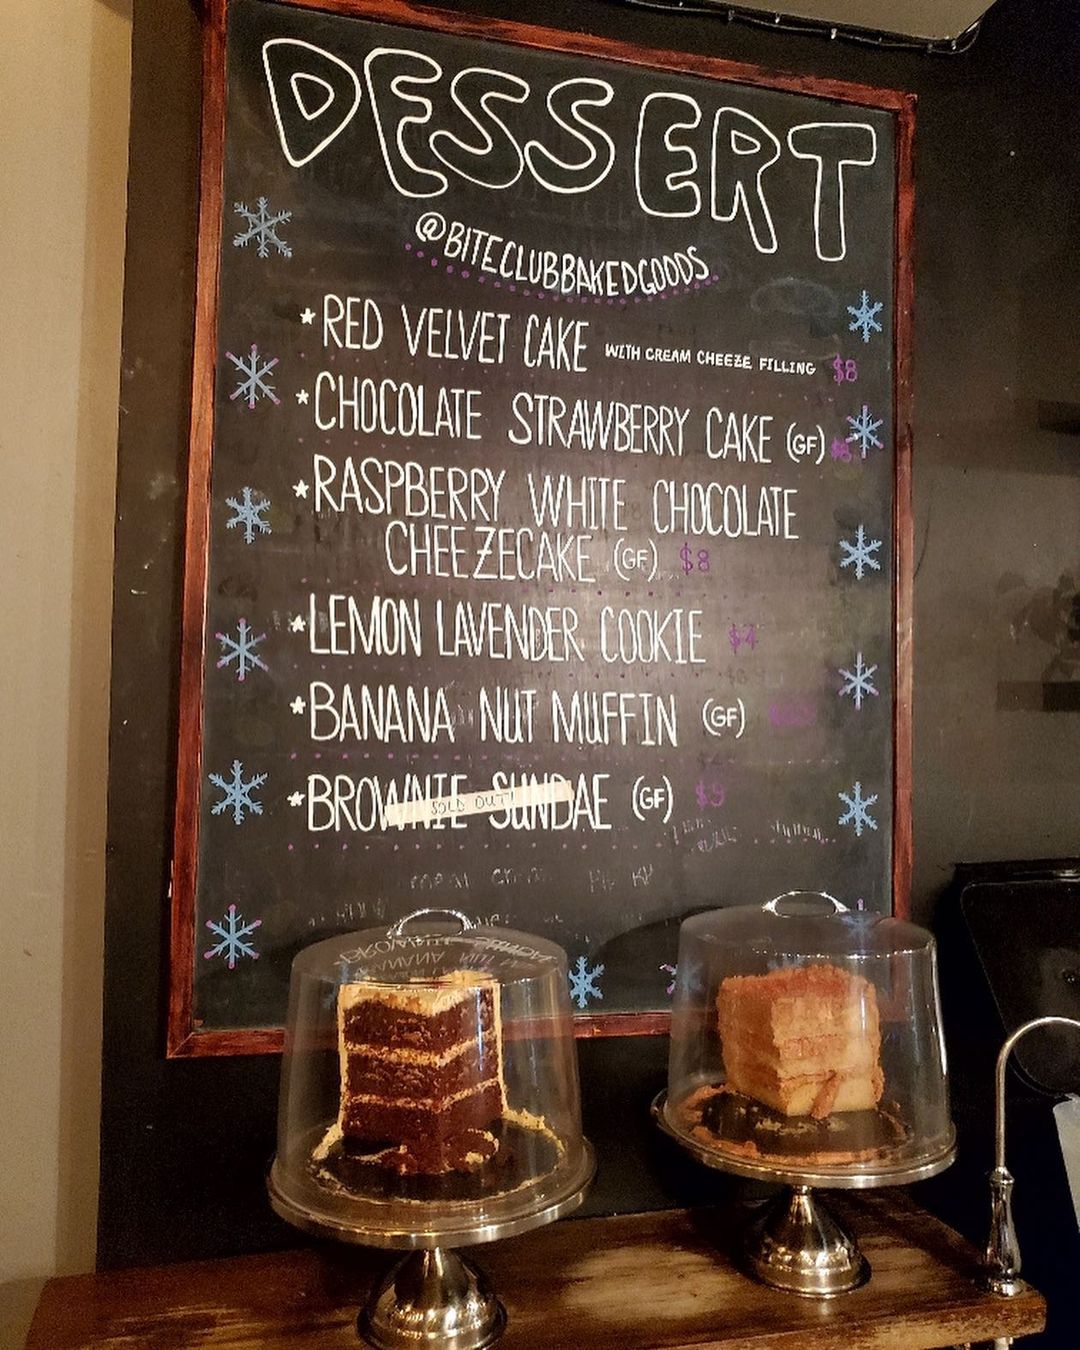 DESSERT
@BITECLUBBAKEDGOODS
*RED VELVET CAKE WITH CREAM CHEEZE FILLING $8
*CHOCOLATE STRAWBERRY CAKE (GF)
*RASPBERRY WHITE CHOCOLATE
CHEEZECAKE (GF) $8
*LEMON LAVENDER COOKIE $4
*BANANA NUT MUFFIN (GF)
*BROWNIE SUNDAE (GF) $9
SOLD OUT!